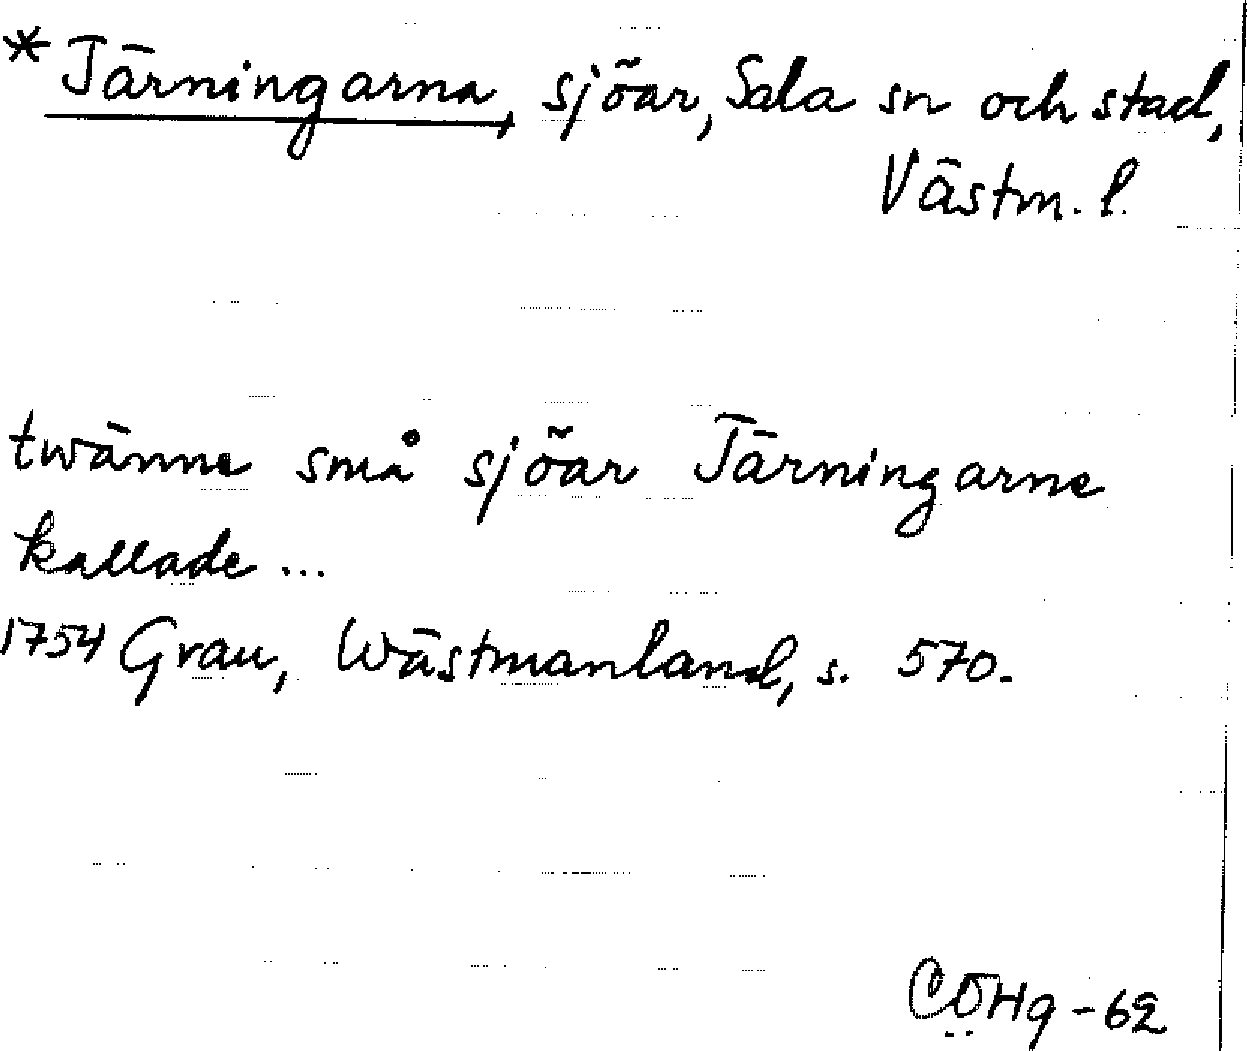 *Tärningarna, sjöar, Sala sn och stad,
Västm. l.
twänne små sjöar Tärningarne
kallade...
1754 Grau, Wästmanland, s. 570.
CÖHg-62